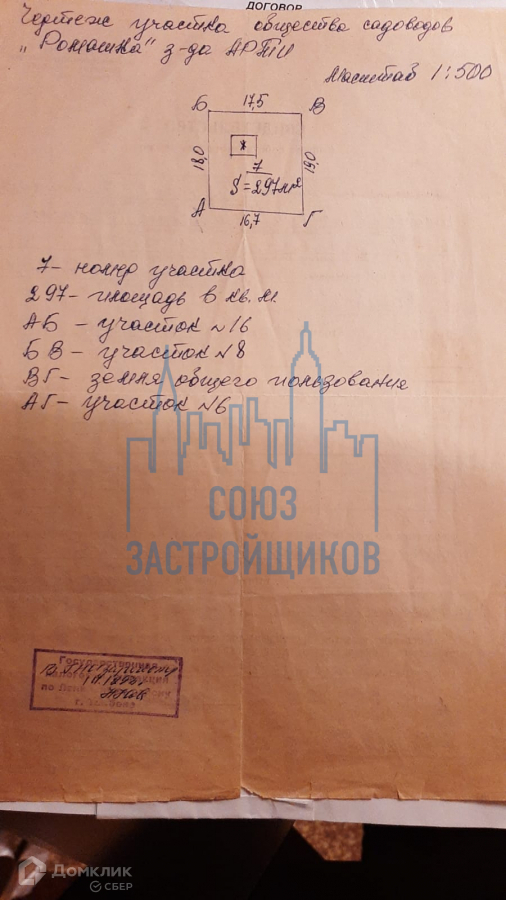 ДОГОВОР
Чертеж участка общества садоводов
"Ромашка" з-да АРТИ
Масштаб 1:500
Б 17,5 В
18,0
ж
19,0
7
S=297м2
А 16,7 Г
7- номер участка
297- площадь в кв. м
АБ - участок N16
БВ - участок N8
ВГ- земля общего пользование
АГ- участок N6
СОЮЗ
ЗАСТРОЙЩИКОВ
Государственная
по
Домклик
СБЕР